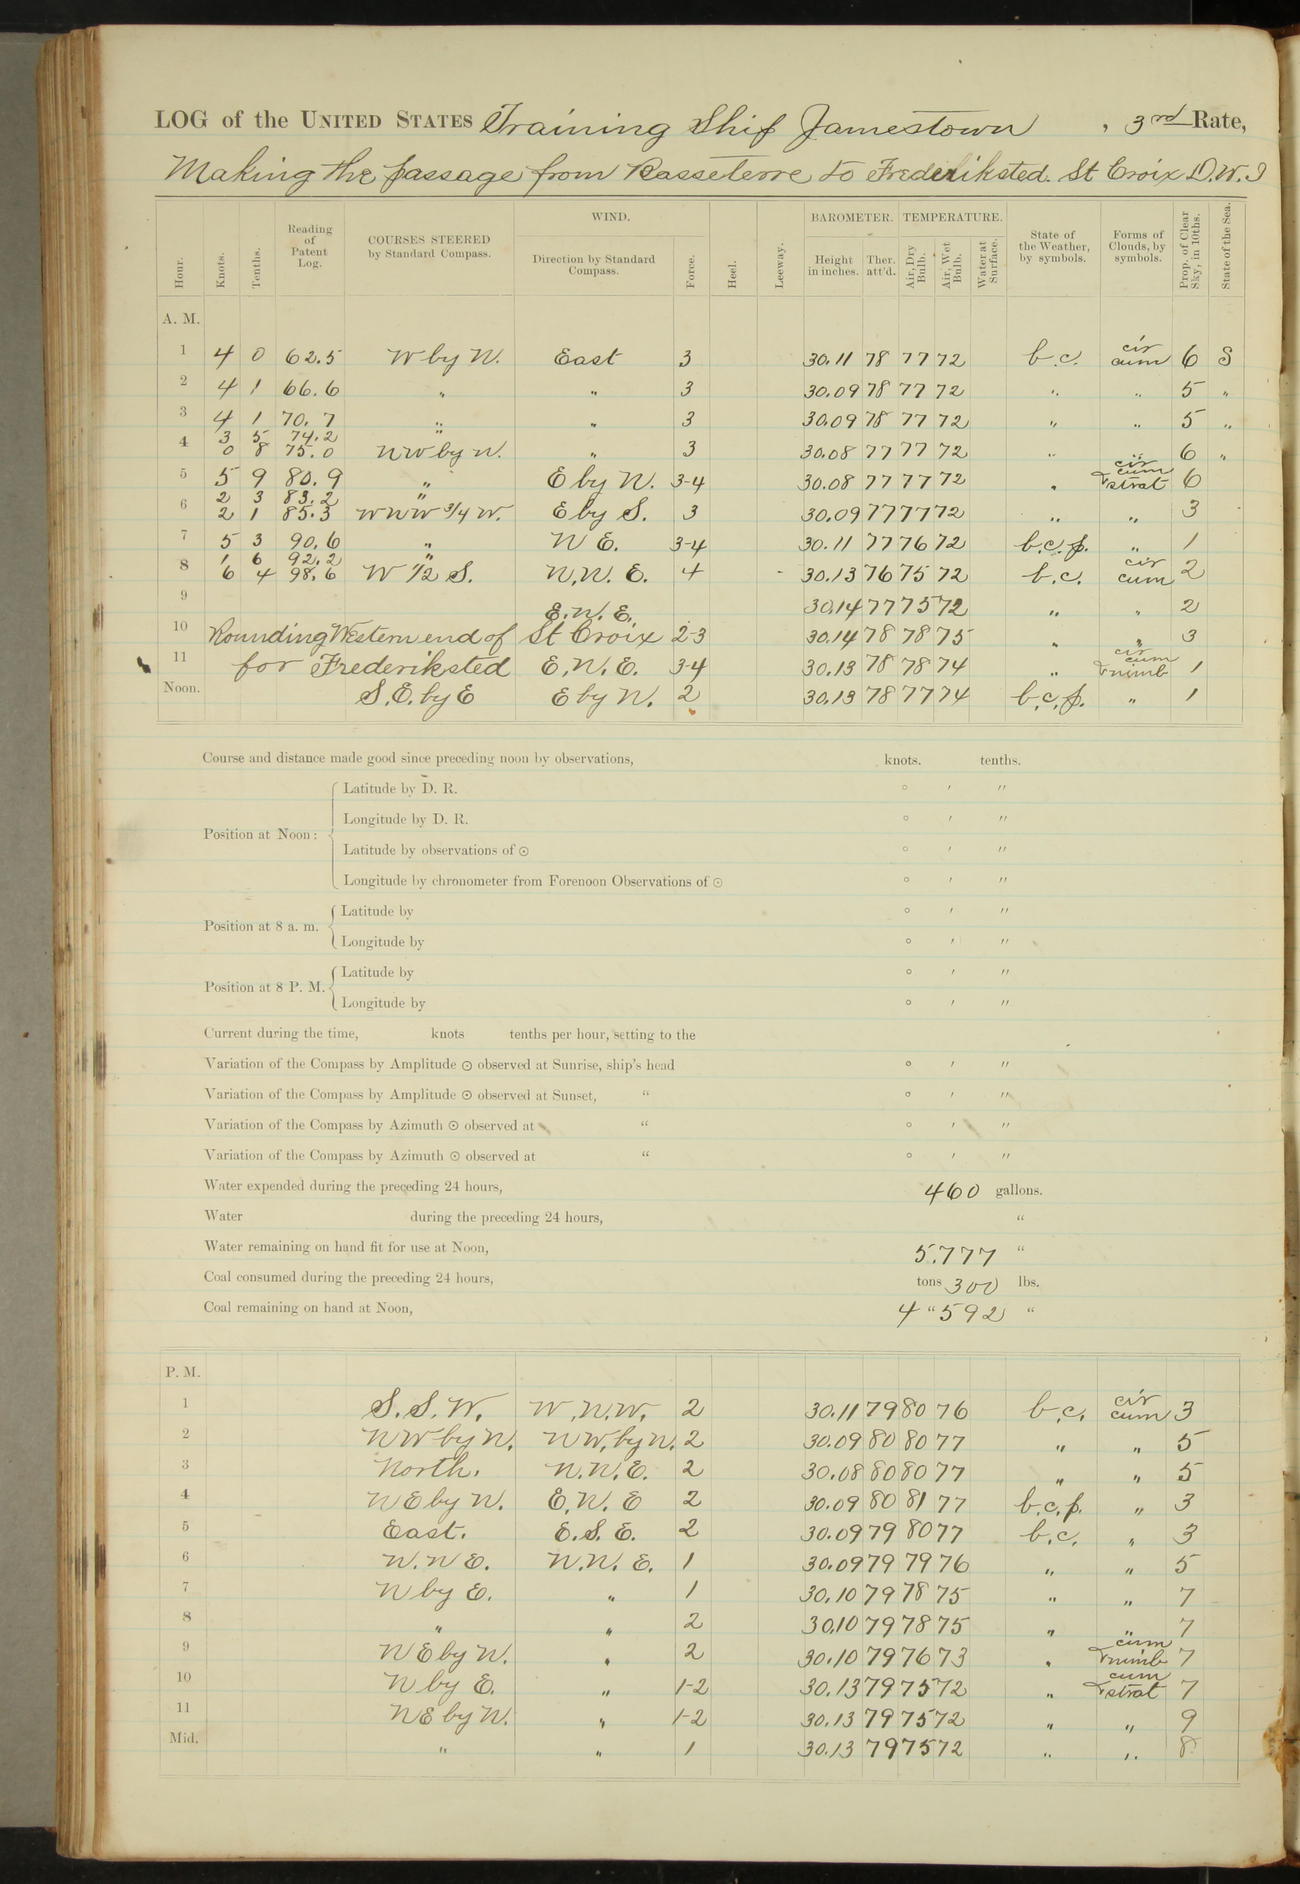 LOG of the UNITED STATES Training Ship Jamestown , 3rd Rate,
Making the passage from Basseterre to Frederiksted. St Croix D.W.I
Hour. Knots. Tenths. Reading of Patent Log. COURSES STEERED by Standard Compass. WIND. Direction by Standard Compass. Force. Heel. Leeway. BAROMETER. Height in inches. Ther. att'd. TEMPERATURE. Air, Dry Bulb. Air, Wet Bulb. Water at Surface. State of the Weather, by symbols. Forms of Clouds, by symbols. Prop. of Clear Sky, in 10ths. State of the Sea.
A. M.
1 4 0 62.5 W by N. East 3 30.11 78 77 72 b.c. cir cum 6 S
2 4 1 66.6 " " 3 30.09 78 77 72 " " 5 "
3 4 1 70.7 " " 3 30.09 78 77 72 " " 5 "
3 5 74.2 "
4 0 8 75.0 NW by N. " 3 30.08 77 77 72 " " 6 "
5 5 9 80.9 " E by N. 3-4 30.08 77 77 72 " cir cum & strat 6
2 3 83.2 "
6 2 1 85.3 WNW 3/4 W. E by S. 3 30.09 77 77 72 " " 3
7 5 3 90.6 " N E. 3-4 30.11 77 76 72 b.c.p. " 1
1 6 92.2 "
8 6 4 98.6 W 1/2 S. N.N.E. 4 30.13 76 75 72 b.c. cir cum 2
9 30.14 77 75 72 " " 2
E.N.E.
10 Rounding Western end of St Croix 2-3 30.14 78 78 75 " " 3
11 for Frederiksted E.N.E. 3-4 30.13 78 78 74 " cir cum & nimb 1
Noon. S.E. by E E by N. 2 30.13 78 77 74 b.c.p. " 1
Course and distance made good since preceding noon by observations, knots. tenths.
Position at Noon:
Latitude by D. R. ° ′ ″
Longitude by D. R. ° ′ ″
Latitude by observations of ☉ ° ′ ″
Longitude by chronometer from Forenoon Observations of ☉ ° ′ ″
Position at 8 a. m.
Latitude by ° ′ ″
Longitude by ° ′ ″
Position at 8 P. M.
Latitude by ° ′ ″
Longitude by ° ′ ″
Current during the time, knots tenths per hour, setting to the
Variation of the Compass by Amplitude ☉ observed at Sunrise, ship's head ° ′ ″
Variation of the Compass by Amplitude ☉ observed at Sunset, " ° ′ ″
Variation of the Compass by Azimuth ☉ observed at " ° ′ ″
Variation of the Compass by Azimuth ☉ observed at " ° ′ ″
Water expended during the preceding 24 hours, 460 gallons.
Water during the preceding 24 hours, "
Water remaining on hand fit for use at Noon, 5.777 "
Coal consumed during the preceding 24 hours, tons 300 lbs.
Coal remaining on hand at Noon, 4 " 592 "
P. M.
1 S.S.W. W.N.W. 2 30.11 79 80 76 b.c. cir cum 3
2 NW by N. NW. by N. 2 30.09 80 80 77 " " 5
3 North. N.N.E. 2 30.08 80 80 77 " " 5
4 NE by N. E.N.E 2 30.09 80 81 77 b.c.p. " 3
5 East. E.S.E. 2 30.09 79 80 77 b.c. " 3
6 N.N E. N.N.E. 1 30.09 79 79 76 " " 5
7 N by E. " 1 30.10 79 78 75 " " 7
8 " " 2 30.10 79 78 75 " " 7
9 NE by N. " 2 30.10 79 76 73 " cum & nimb 7
10 N by E. " 1-2 30.13 79 75 72 " cum & strat 7
11 NE by N. " 1-2 30.13 79 75 72 " " 9
Mid. " " 1 30.13 79 75 72 " " 8